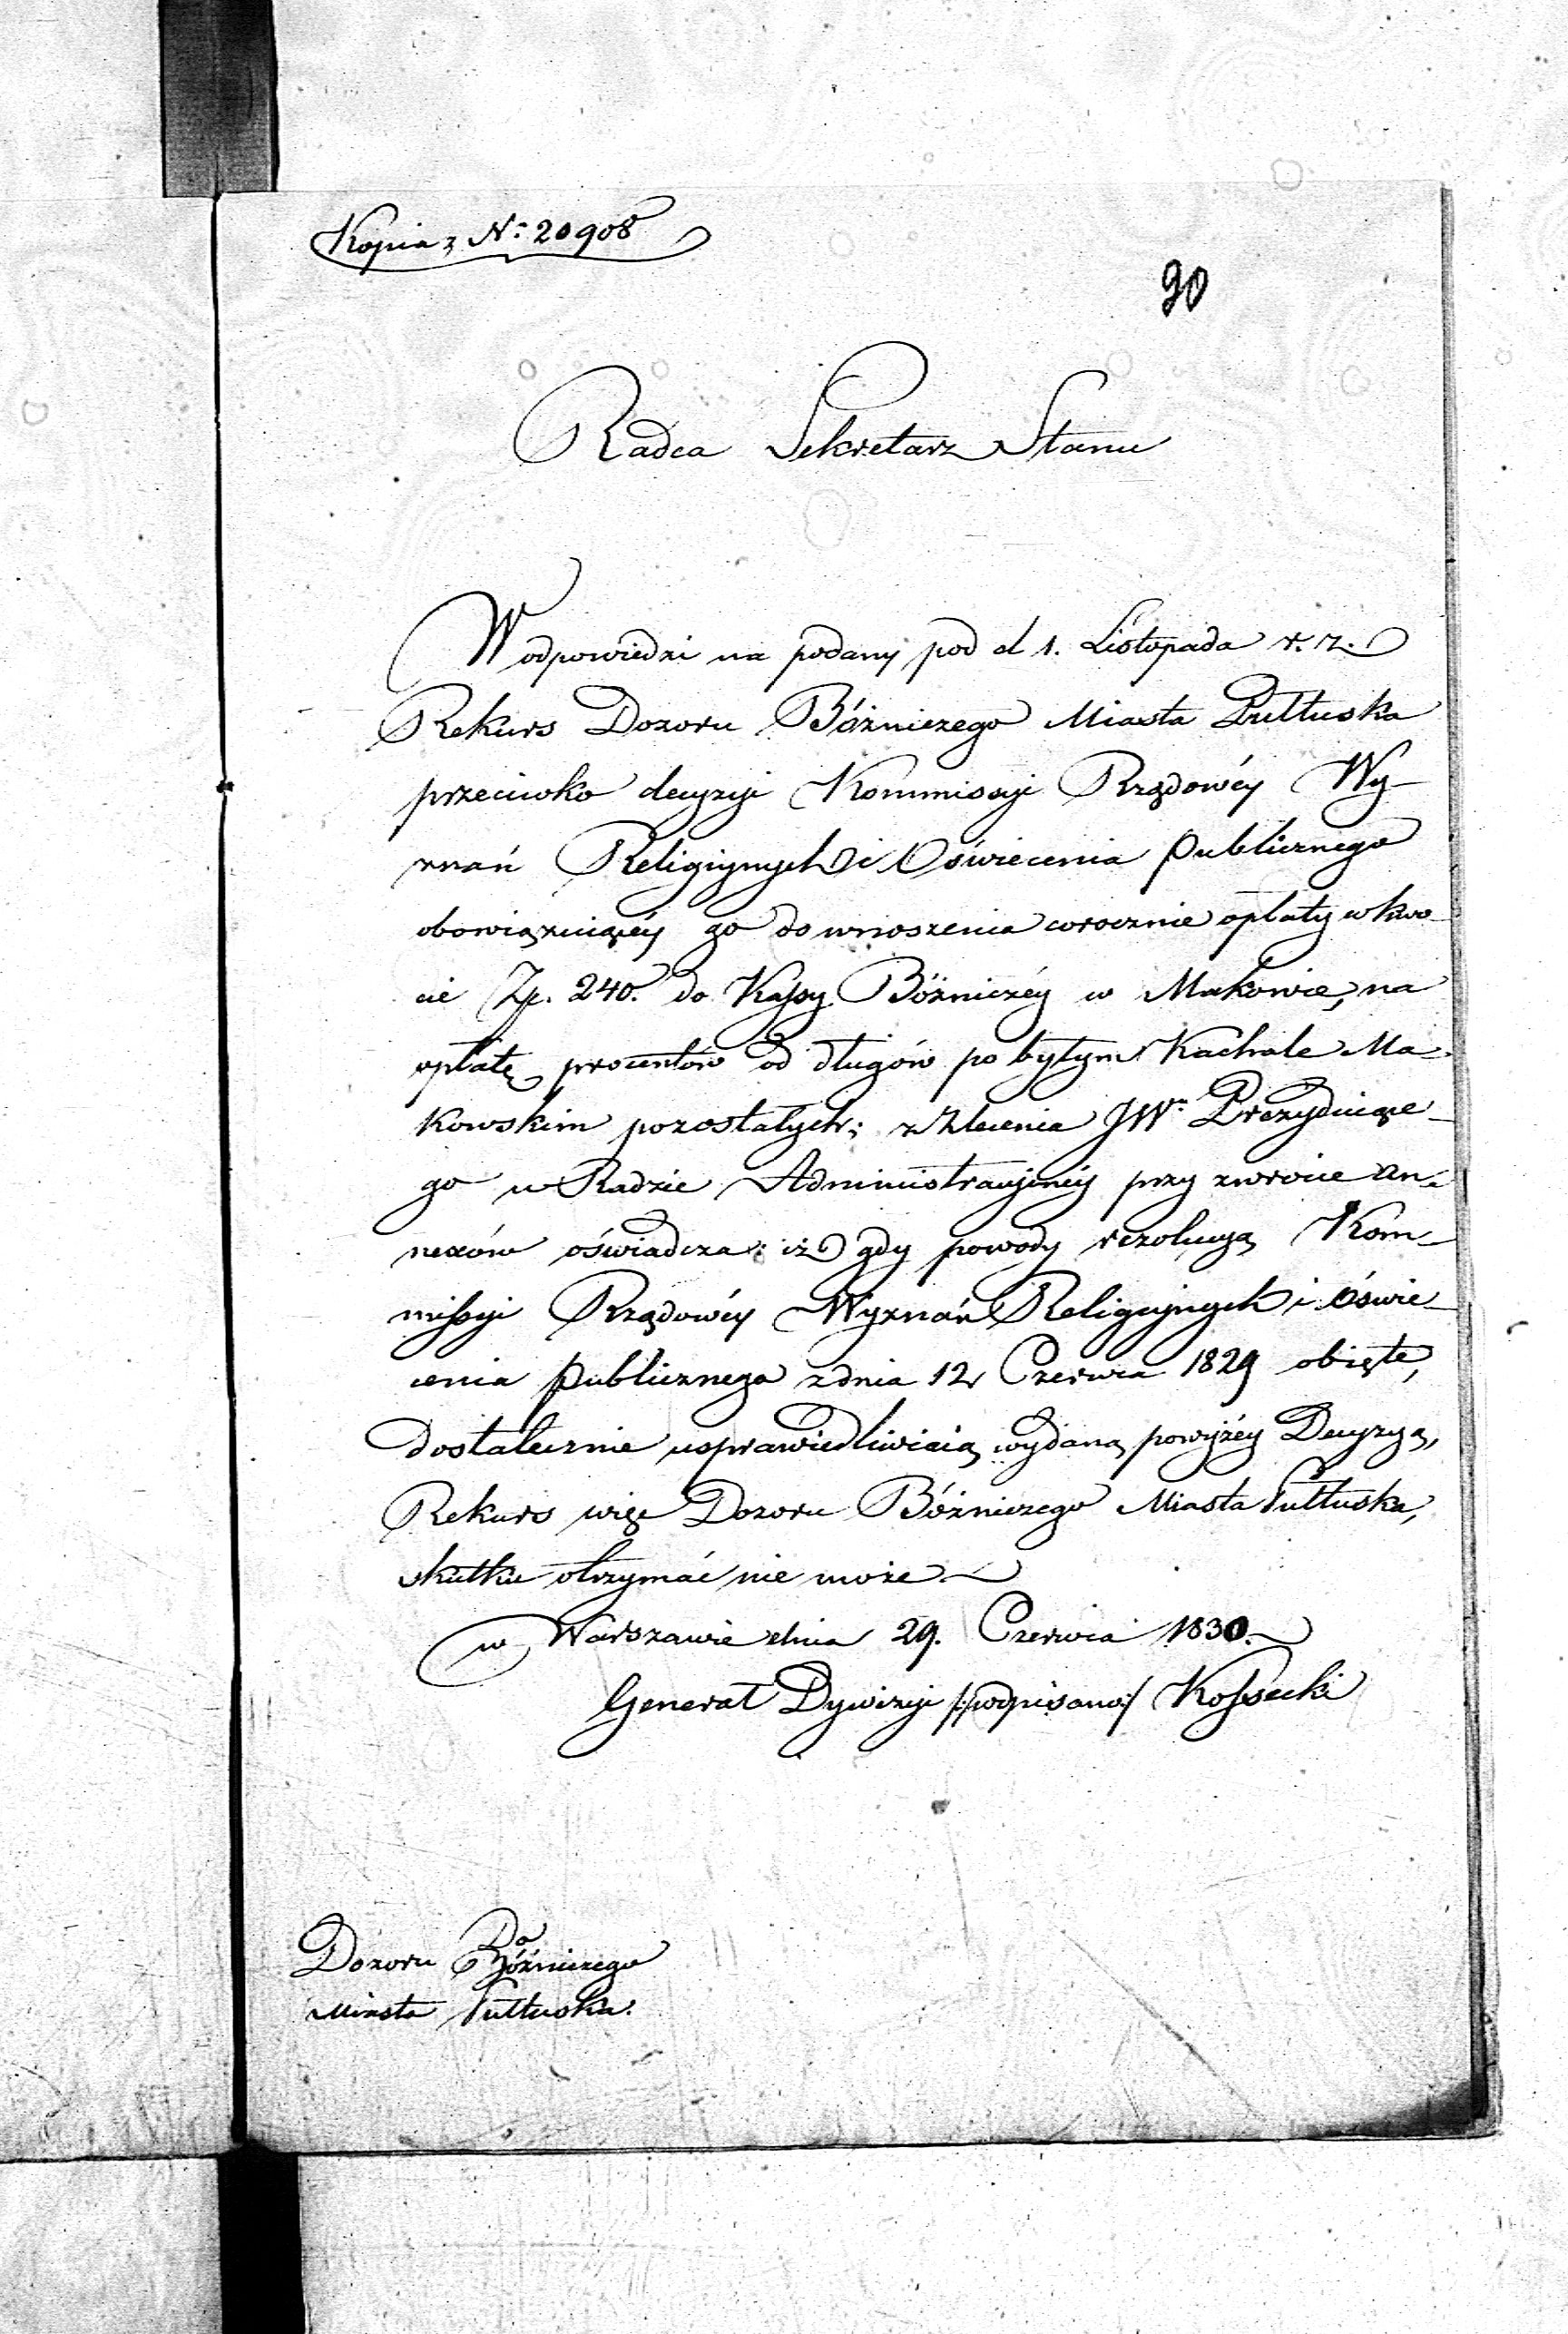 Kopia z Nº 20908
90
Radca Sekretarz Stanu
W odpowiedzi na podany pod d 1. Listopada r. z.
Rekurs Dozoru Bóżniczego Miasta Pułtuska
przeciwko decyzyi Kommissyi Rządowéy Wy-
znań Religiynych i Oświecenia publicznego
obowiązuiącéy go do wnoszenia corocznie opłaty w kwo-
cie Zp. 240. do Kassy Bóżniczéy w Makowie, na
opłatę procentów od długów po byłym Kachale Ma-
kowskim pozostałych; z Zlecenia JWº Prezyduiące-
go w Radzie Administracyinéy przy zwrocie an-
nexów oświadcza: iż gdy powody rezolucyą Kom-
missyi Rządowéy Wyznań Religiynych i Oświe-
cenia publicznego z dnia 12 Czerwca 1829 obięte,
dostatecznie usprawiedliwiaią wydaną powyżéy Decyzyą,
Rekurs więc Dozoru Bóżniczego Miasta Pułtuska,
skutku otrzymać nie może.
w Warszawie dnia 29. Czerwca 1830.
Generał Dywizyi /:podpisano:/ Kossecki
Do
Dozoru Bóżniczego
Miasta Pułtuska.